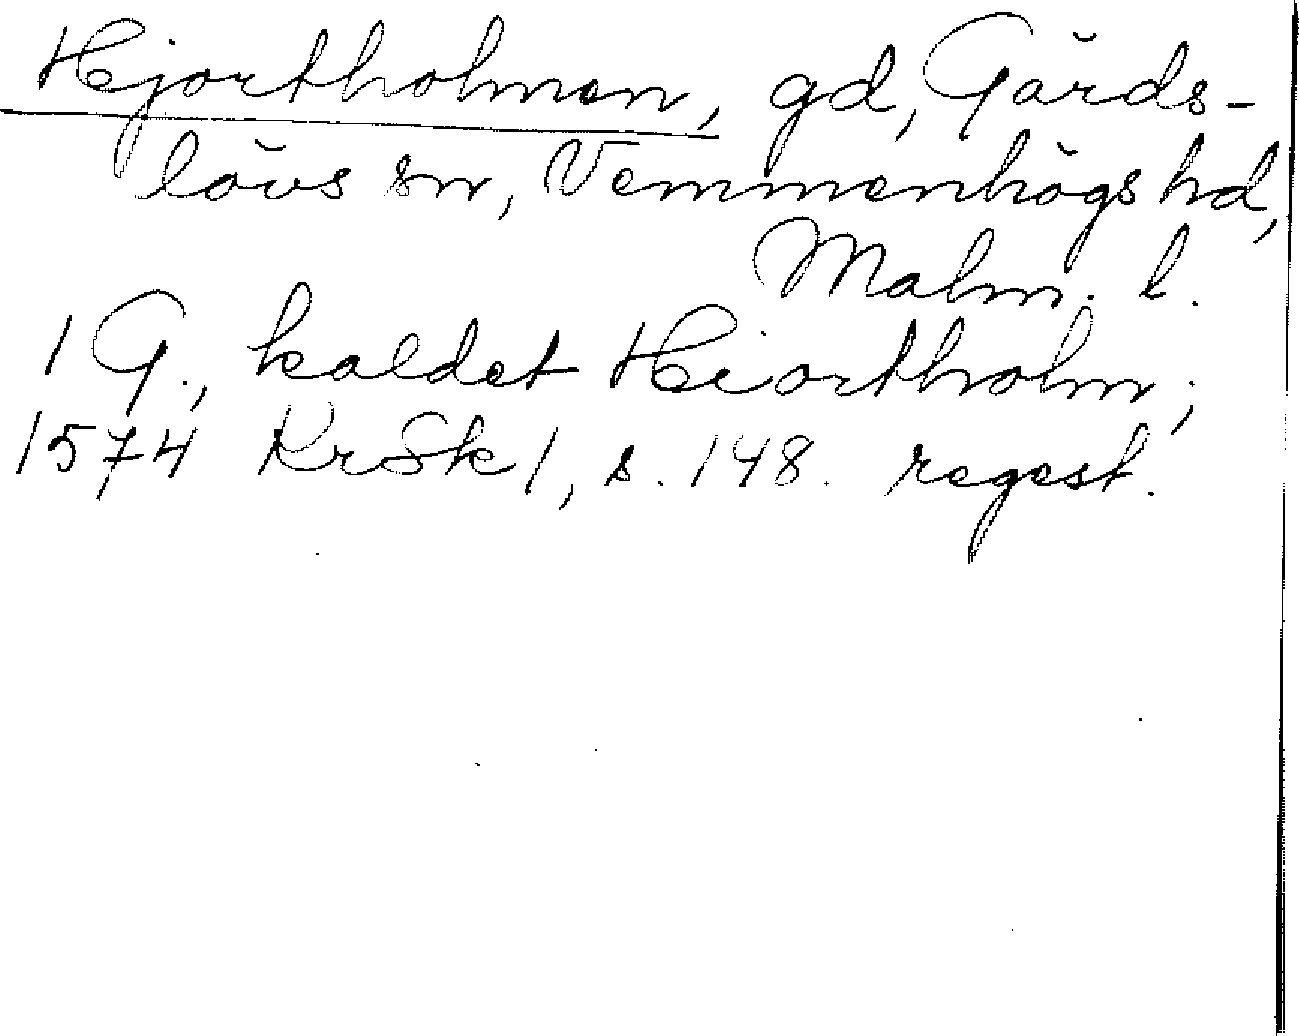 Hjortholmen, gd, Gärds-
lövs sn, Vemmenhögs hd,
Malm. l.
1 G., kaldet Heiortholm;
1574 KrSk 1, s. 148. regest.